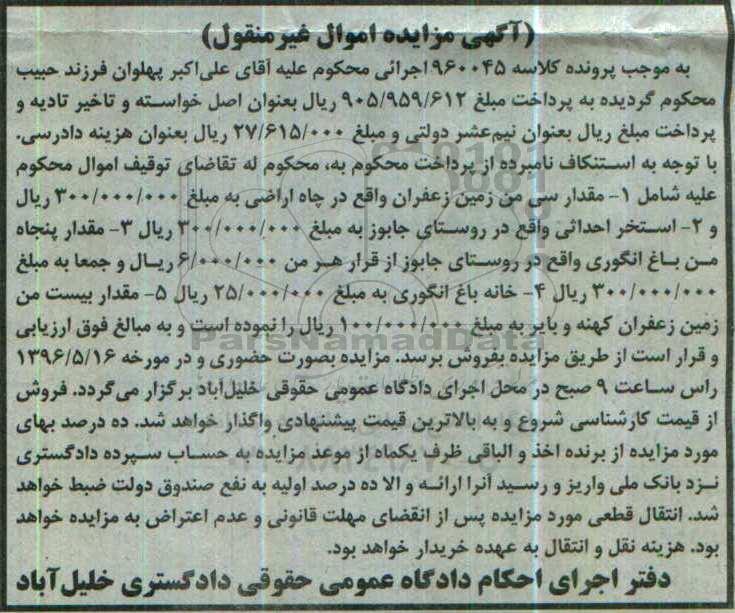 (آگهی مزایده اموال غیرمنقول)
به موجب پرونده کلاسه ۹۶۰۰۴۵ اجرائی محکوم علیه آقای علی‌اکبر پهلوان فرزند حبیب
محکوم گردیده به پرداخت مبلغ ۹۰۵/۹۵۹/۶۱۲ ریال بعنوان اصل خواسته و تاخیر تادیه و
پرداخت مبلغ ریال بعنوان نیم‌عشر دولتی و مبلغ ۲۷/۶۱۵/۰۰۰ ریال بعنوان هزینه دادرسی.
با توجه به استنکاف نامبرده از پرداخت محکوم به، محکوم له تقاضای توقیف اموال محکوم
علیه شامل ۱- مقدار سی من زمین زعفران واقع در چاه اراضی به مبلغ ۳۰۰/۰۰۰/۰۰۰ ریال
و ۲- استخر احداثی واقع در روستای جابوز به مبلغ ۳۰۰/۰۰۰/۰۰۰ ریال ۳- مقدار پنجاه
من باغ انگوری واقع در روستای جابوز از قرار هر من ۶/۰۰۰/۰۰۰ ریال و جمعا به مبلغ
۳۰۰/۰۰۰/۰۰۰ ریال ۴- خانه باغ انگوری به مبلغ ۲۵/۰۰۰/۰۰۰ ریال ۵- مقدار بیست من
زمین زعفران کهنه و بایر به مبلغ ۱۰۰/۰۰۰/۰۰۰ ریال را نموده است و به مبالغ فوق ارزیابی
و قرار است از طریق مزایده بفروش برسد. مزایده بصورت حضوری و در مورخه ۱۳۹۶/۵/۱۶
راس ساعت ۹ صبح در محل اجرای دادگاه عمومی حقوقی خلیل‌اباد برگزار می‌گردد. فروش
از قیمت کارشناسی شروع و به بالاترین قیمت پیشنهادی واگذار خواهد شد. ده درصد بهای
مورد مزایده از برنده اخذ و الباقی ظرف یکماه از موعد مزایده به حساب سپرده دادگستری
نزد بانک ملی واریز و رسید آنرا ارائه و الا ده درصد اولیه به نفع صندوق دولت ضبط خواهد
شد. انتقال قطعی مورد مزایده پس از انقضای مهلت قانونی و عدم اعتراض به مزایده خواهد
بود. هزینه نقل و انتقال به عهده خریدار خواهد بود.
دفتر اجرای احکام دادگاه عمومی حقوقی دادگستری خلیل‌آباد
ParsNamadData